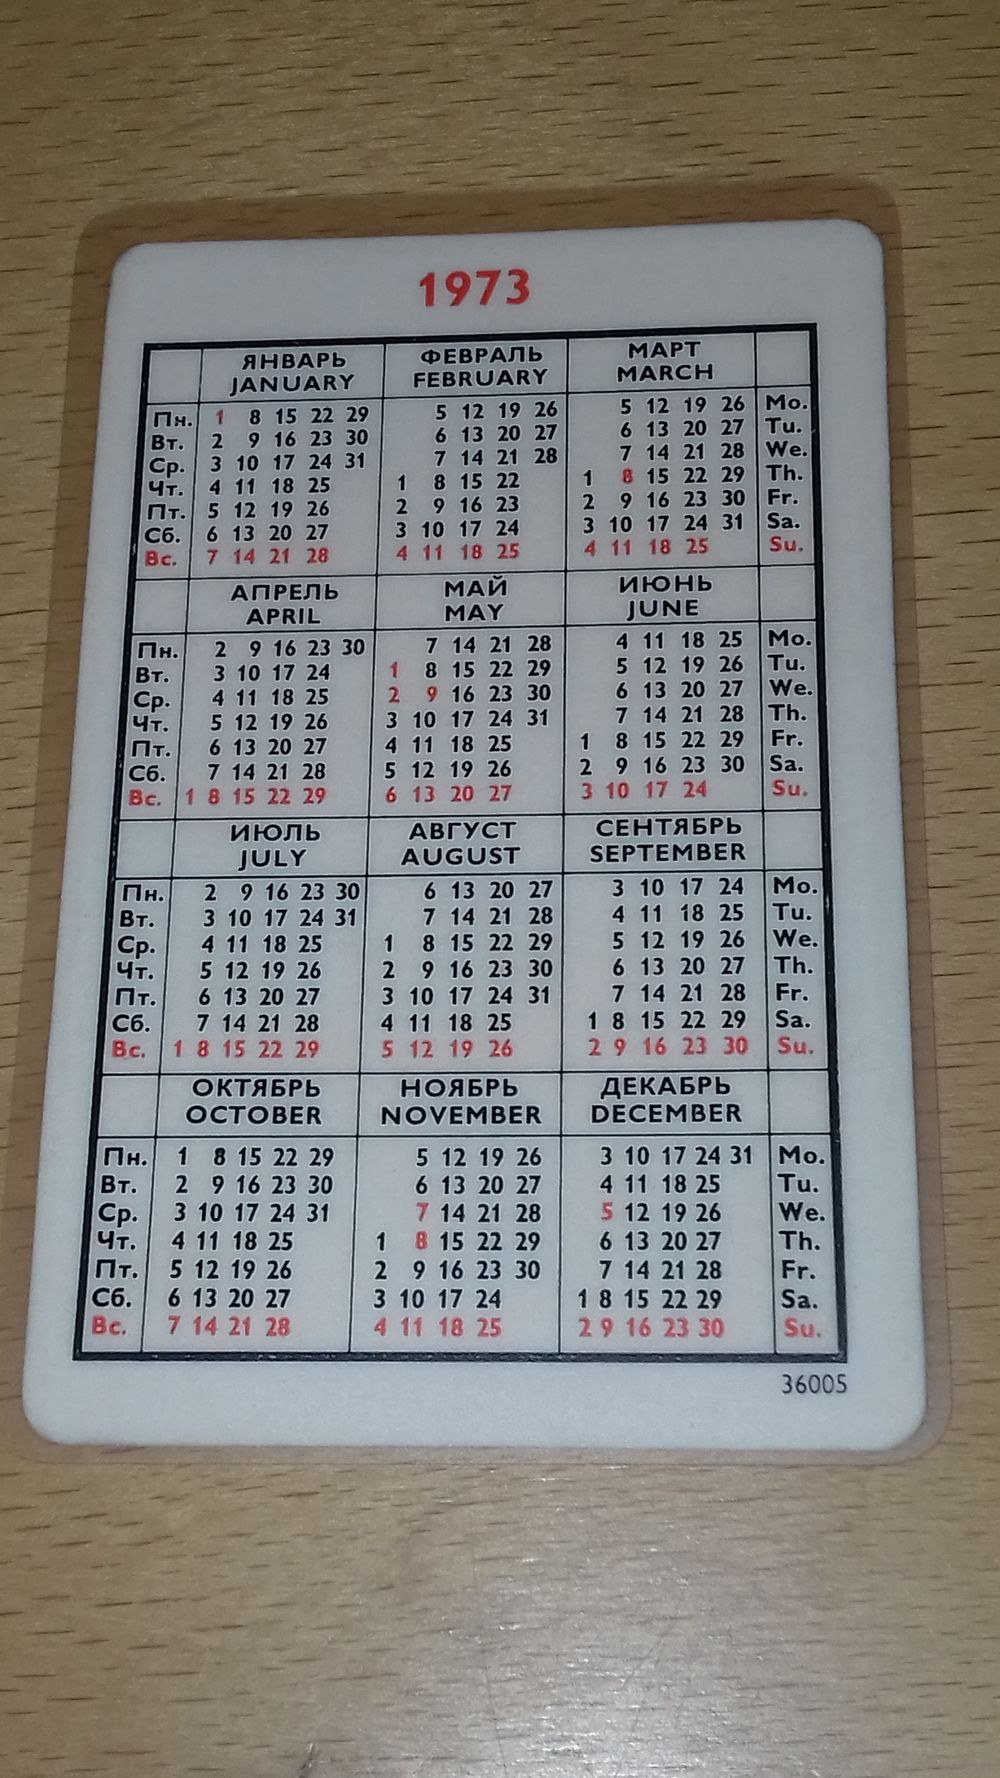 1973
ЯНВАРЬ ФЕВРАЛЬ МАРТ
JANUARY FEBRUARY MARCH
Пн. 1 8 15 22 29 5 12 19 26 5 12 19 26 Mo.
Вт. 2 9 16 23 30 6 13 20 27 6 13 20 27 Tu.
Ср. 3 10 17 24 31 7 14 21 28 7 14 21 28 We.
Чт. 4 11 18 25 1 8 15 22 1 8 15 22 29 Th.
Пт. 5 12 19 26 2 9 16 23 2 9 16 23 30 Fr.
Сб. 6 13 20 27 3 10 17 24 3 10 17 24 31 Sa.
Вс. 7 14 21 28 4 11 18 25 4 11 18 25 Su.
АПРЕЛЬ МАЙ ИЮНЬ
APRIL MAY JUNE
Пн. 2 9 16 23 30 7 14 21 28 4 11 18 25 Mo.
Вт. 3 10 17 24 1 8 15 22 29 5 12 19 26 Tu.
Ср. 4 11 18 25 2 9 16 23 30 6 13 20 27 We.
Чт. 5 12 19 26 3 10 17 24 31 7 14 21 28 Th.
Пт. 6 13 20 27 4 11 18 25 1 8 15 22 29 Fr.
Сб. 7 14 21 28 5 12 19 26 2 9 16 23 30 Sa.
Вс. 1 8 15 22 29 6 13 20 27 3 10 17 24 Su.
ИЮЛЬ АВГУСТ СЕНТЯБРЬ
JULY AUGUST SEPTEMBER
Пн. 2 9 16 23 30 6 13 20 27 3 10 17 24 Mo.
Вт. 3 10 17 24 31 7 14 21 28 4 11 18 25 Tu.
Ср. 4 11 18 25 1 8 15 22 29 5 12 19 26 We.
Чт. 5 12 19 26 2 9 16 23 30 6 13 20 27 Th.
Пт. 6 13 20 27 3 10 17 24 31 7 14 21 28 Fr.
Сб. 7 14 21 28 4 11 18 25 1 8 15 22 29 Sa.
Вс. 1 8 15 22 29 5 12 19 26 2 9 16 23 30 Su.
ОКТЯБРЬ НОЯБРЬ ДЕКАБРЬ
OCTOBER NOVEMBER DECEMBER
Пн. 1 8 15 22 29 5 12 19 26 3 10 17 24 31 Mo.
Вт. 2 9 16 23 30 6 13 20 27 4 11 18 25 Tu.
Ср. 3 10 17 24 31 7 14 21 28 5 12 19 26 We.
Чт. 4 11 18 25 1 8 15 22 29 6 13 20 27 Th.
Пт. 5 12 19 26 2 9 16 23 30 7 14 21 28 Fr.
Сб. 6 13 20 27 3 10 17 24 1 8 15 22 29 Sa.
Вс. 7 14 21 28 4 11 18 25 2 9 16 23 30 Su.
36005